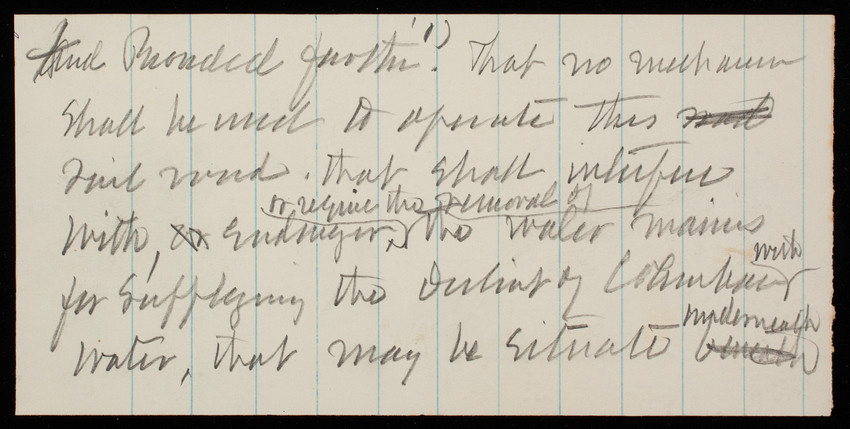 And Provided further '1) That no mechanism
shall be used to operate this road
rail road. that shall interfere
or require the removal of
with, or Endanger, the water mains
with
for supplying the District of Columbia
underneath
water, that may be situate beneath